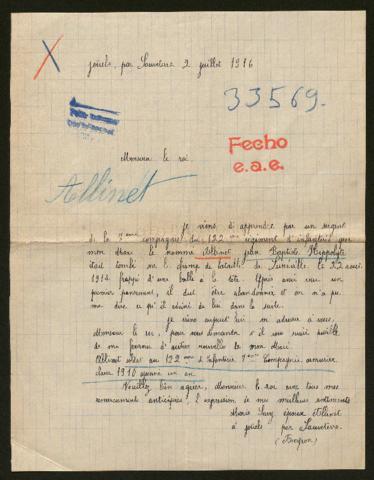 par Sauveterre 2 juillet 1916
33569.
Fecho
e.a.e.
Monsieur le roi
Allinet
je viens d'apprendre par un sergent
de la compagnie du 122 régiment d'infanterie que
mon Mari le nommé Alinet jean Baptiste Hippolyte
était tombé sur le champ de bataille de Lunéville le 22 août
1914 frappé d'une balle à la tête. Après avoir eu un
premier pansement, il dut être abandonné et on n'a pu
me dire ce qu'il advint de lui dans la suite.
je viens aujourd'hui m'adresser à vous,
Monsieur le roi, pour vous demander s'il vous serait possible
de me fournir d'autres nouvelles de mon Mari.
soldat au 122 d'Infanterie Compagnie
Veuillez bien agréer, Monsieur le roi avec tous mes
remerciements anticipés, l'expression de mes meilleurs sentiments
Marie épouse
à par Sauveterre
(Aveyron)